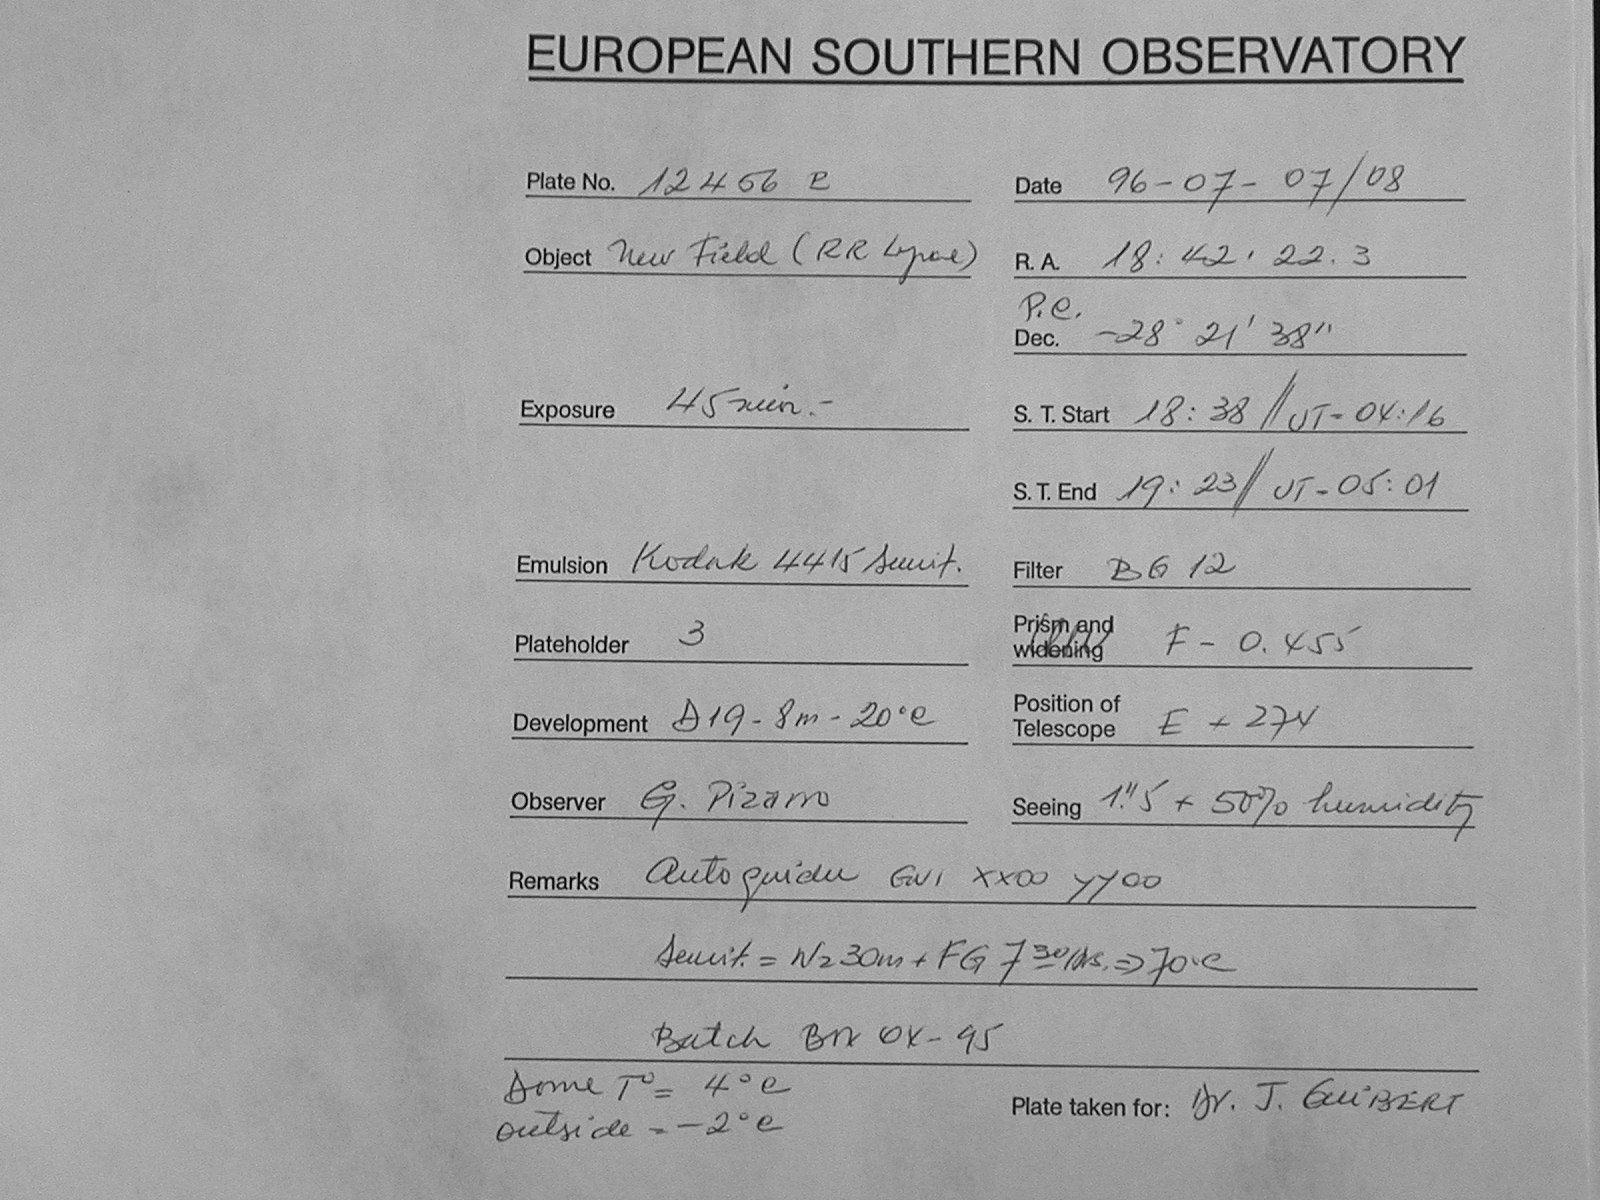 EUROPEAN SOUTHERN OBSERVATORY
Plate No. 12466 e
Date 96-07-07/08
Object New Field (RR Lyrae)
R. A. 18: 42: 22. 3
P.e.
Dec. -28° 21' 38"
Exposure 45 min.-
S. T. Start 18: 38 // UT- 04:16
S. T. End 19: 23 // UT- 05: 01
Emulsion Kodak 4415 Sensit.
Filter BG 12
Plateholder 3
Prism and
widening F - 0.455
Development D19 - 8m - 20°C
Position of
Telescope E + 274
Observer G. Pizarro
Seeing 1."5 + 50% humidity
Remarks Autoguider GW1 XX00 YY00
Sensit. = N2 30m + FG 7 30 hrs. => 70°C
Batch 0X-95
Dome T° = 4°C
outside = -2°C
Plate taken for: Dr. J. GUIBERT